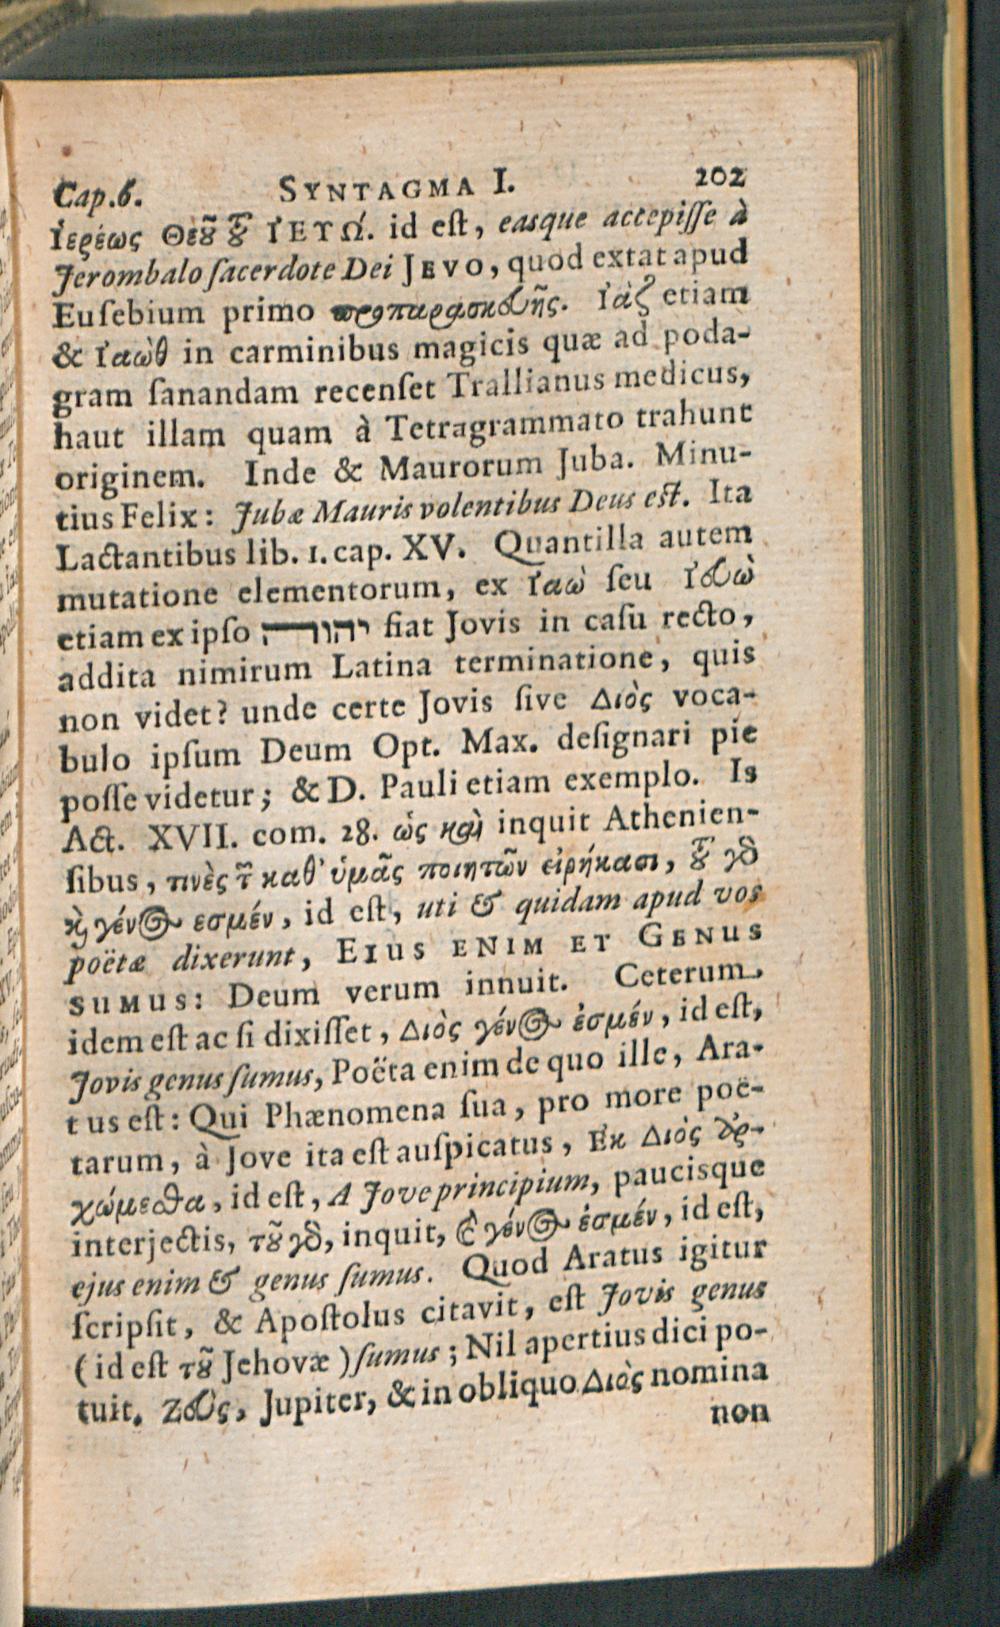 Cap.6. SYNTAGMA I. 202
ἱερέως Θεȣ͂ τȣ͂ ἸΕΥΏ. id eſt, easque accepiſſe à
Jerombalo ſacerdote Dei JEVO, quod extat apud
Euſebium primo προπαρασκευῆς. Ἰὰζ etiam
& ἰαὼθ in carminibus magicis quæ ad poda-
gram ſanandam recenſet Trallianus medicus,
haut illam quam à Tetragrammato trahunt
originem. Inde & Maurorum Juba. Minu-
tius Felix: Jubæ Mauris volentibus Deus eſt. Ita
Lactantibus lib. 1. cap. XV. Quantilla autem
mutatione elementorum, ex ἰαὼ ſeu ἰευὼ
etiam ex ipſo יהוה fiat Jovis in caſu recto,
addita nimirum Latina terminatione, quis
non videt? unde certe Jovis ſive Διὸς voca-
bulo ipſum Deum Opt. Max. deſignari pie
poſſe videtur; & D. Pauli etiam exemplo. Is
Act. XVII. com. 28. ὡς καὶ inquit Athenien-
ſibus, τινὲς τ῀ καθ' ὑμᾶς ποιητῶν εἰρήκασι, τȣ͂ γὰρ
κὶ γένος εσμέν, id eſt, uti & quidam apud vos
poëtæ dixerunt, EIUS ENIM ET GENUS
SUMUS: Deum verum innuit. Ceterum
idem eſt ac ſi dixiſſet, Διὸς γένος ἐσμέν, id eſt,
Jovis genus ſumus, Poëta enim de quo ille, Ara-
tus eſt: Qui Phænomena ſua, pro more poë-
tarum, à Jove ita eſt auſpicatus, Εκ Διὸς ἀρ-
χώμεσθα, id eſt, A Jove principium, paucisque
interjectis, τȣ͂ γὰρ, inquit, κὶ γένος ἐσμέν, id eſt,
ejus enim & genus ſumus. Quod Aratus igitur
ſcripſit, & Apoſtolus citavit, eſt Jovis genus
(id eſt τȣ͂ Jehovæ) ſumus; Nil apertius dici po-
tuit. Ζεὺς, Jupiter, & in obliquo Διὸς nomina
non